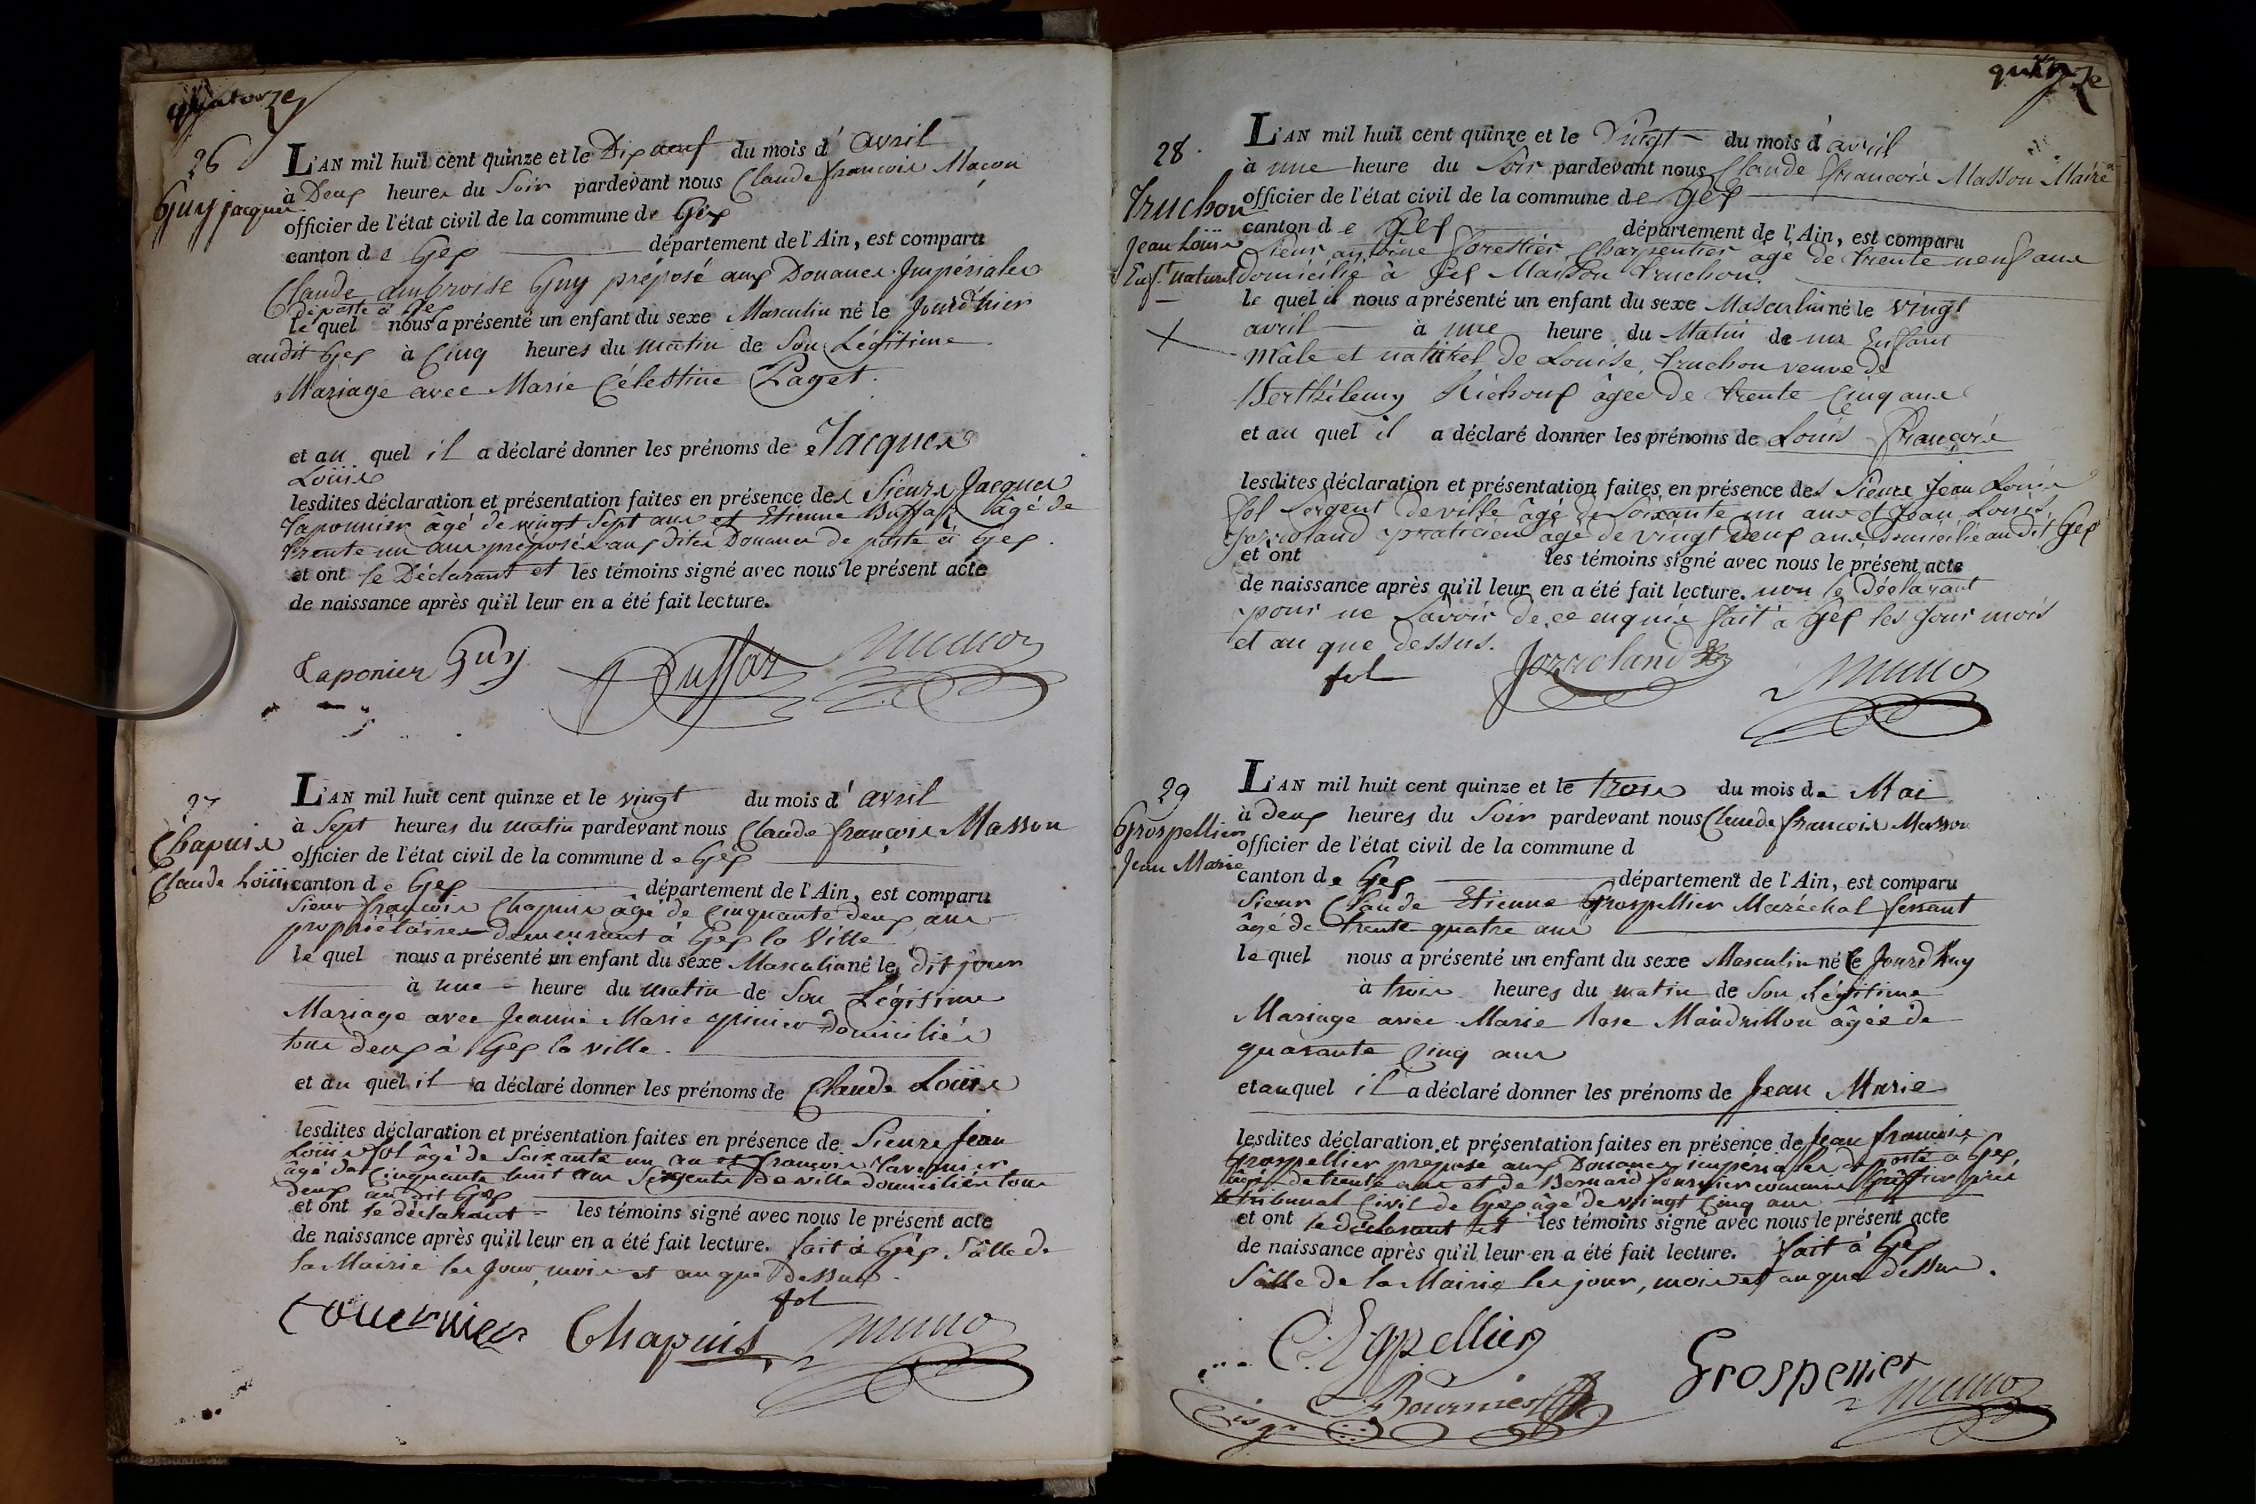 quatorze
26
Guy jacques
L'AN mil huit cent quinze et le Dix neuf du mois d' avril
à Deux heures du Soir pardevant nous Claude françois Maçon
officier de l'état civil de la commune de Gex
canton de Gex département de l'Ain, est comparu
Claude ambroise Guy préposé aux Douanes Impériales
de poste à Gex
le quel nous a présenté un enfant du sexe Masculin né le Jourd'hier
audit Gex à Cinq heures du matin de Son Légitime
Mariage avec Marie Célestine Paget.
et au quel il a déclaré donner les prénoms de Jacques
Louis
lesdites déclaration et présentation faites en présence des Sieurs Jacques
Taponnier âgé de vingt Sept ans et Etienne Buffaz âgé de
trente un ans préposés aux dites Douanes de poste à Gex.
et ont le Déclarant et les témoins signé avec nous le présent acte
de naissance après qu'il leur en a été fait lecture.
Taponier Guy Buffaz
27
Chapuis
Claude Louis
L'AN mil huit cent quinze et le vingt du mois d' avril
à Sept heures du matin pardevant nous Claude françois Masson
officier de l'état civil de la commune de Gex
canton de Gex département de l'Ain, est comparu
Sieur françois Chapuis âgé de Cinquante deux ans
propriétaire demeurant à Gex la Ville
le quel nous a présenté un enfant du sexe Masculin né le dit jour
à une heure du matin de Son Légitime
Mariage avec Jeanne Marie domiciliés
tous deux à Gex la ville.
et au quel il a déclaré donner les prénoms de Claude Louis
lesdites déclaration et présentation faites en présence de Sieurs Jean
Louis fol âgé de Soixante un an et françois Tavernier
âgé de Cinquante huit ans Sergents de ville domiciliés tous
deux au dit Gex
et ont le déclarant les témoins signé avec nous le présent acte
de naissance après qu'il leur en a été fait lecture. fait à Gex Sâlle de
la Mairie les jour, mois et an que dessus.
fol
Chapuis
quinze
28.
Truchon
Jean Louis
Enft. naturel
L'AN mil huit cent quinze et le Vingt du mois d' avril
à une heure du Soir pardevant nous Claude francois Masson Maire
officier de l'état civil de la commune de Gex
canton de Gex département de l'Ain, est comparu
Sieur antoine forestier Charpentier âgé de trente neuf ans
domicilié à Gex Maison truchon.
le quel il nous a présenté un enfant du sexe Masculin né le vingt
avril à une heure du Matin de un Enfant
mâle et naturel de Louise truchon veuve de
Berthélemy Richoux âgée de trente Cinq ans
et au quel il a déclaré donner les prénoms de Louis François
lesdites déclaration et présentation faites en présence des Sieurs Jean Louis
fol Sergent de ville âgé de Soixante un ans et Jean Louis
praticien âgé de vingt deux ans domiciliés au dit Gex
et ont les témoins signé avec nous le présent acte
de naissance après qu'il leur en a été fait lecture. non le déclarant
pour ne Savoir de ce enquis fait à Gex les jour mois
et an que dessus.
fol
29
Grospellier
Jean Marie
L'AN mil huit cent quinze et le trois du mois de Mai
à deux heures du Soir pardevant nous Claude francois Masson
officier de l'état civil de la commune d
canton de Gex département de l'Ain, est comparu
Sieur Claude Etienne Grospellier Maréchal ferrant
âgé de trente quatre ans
le quel nous a présenté un enfant du sexe Masculin né le Jourd'huy
à trois heures du matin de Son Légitime
Mariage avec Marie Rose Maudrillon âgée de
quarante Cinq ans
et au quel il a déclaré donner les prénoms de Jean Marie
lesdites déclaration et présentation faites en présence de Jean francois
Grospellier préposé aux Douanes impériales de poste à Gex,
âgé de trente ans et de Bernard fournier commis Greffier près
le tribunal Civil de Gex âgé de vingt Cinq ans
et ont le déclarant et les témoins signé avec nous le présent acte
de naissance après qu'il leur en a été fait lecture. fait à Gex
Sâlle de la Mairie les jour, mois et an que dessus.
Grospellier